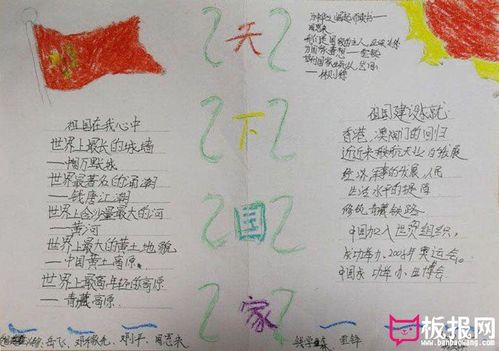 为中华之崛起而读书——
周恩来
天
下
国
家
祖国在我心中
世界上最长的城墙
——
世界最著名的涌潮
——钱唐江潮
世界上含沙量最大的河
——黄河
世界上最大的黄土地貌
——中国黄土高原
世界上最高年轻的高原
——青藏高原
祖国建设成就
香港,澳门的回归
近近来航天业的发展
经济的发展,人民
生活水平的提高
修筑青藏铁路
中国加入世界组织,
成功举办,2008年奥运会。
中国成功举办,世博会
岳飞、邓稼先、邓小平、周恩来
钱学森
雷锋
板报网
www.banbaowang.com